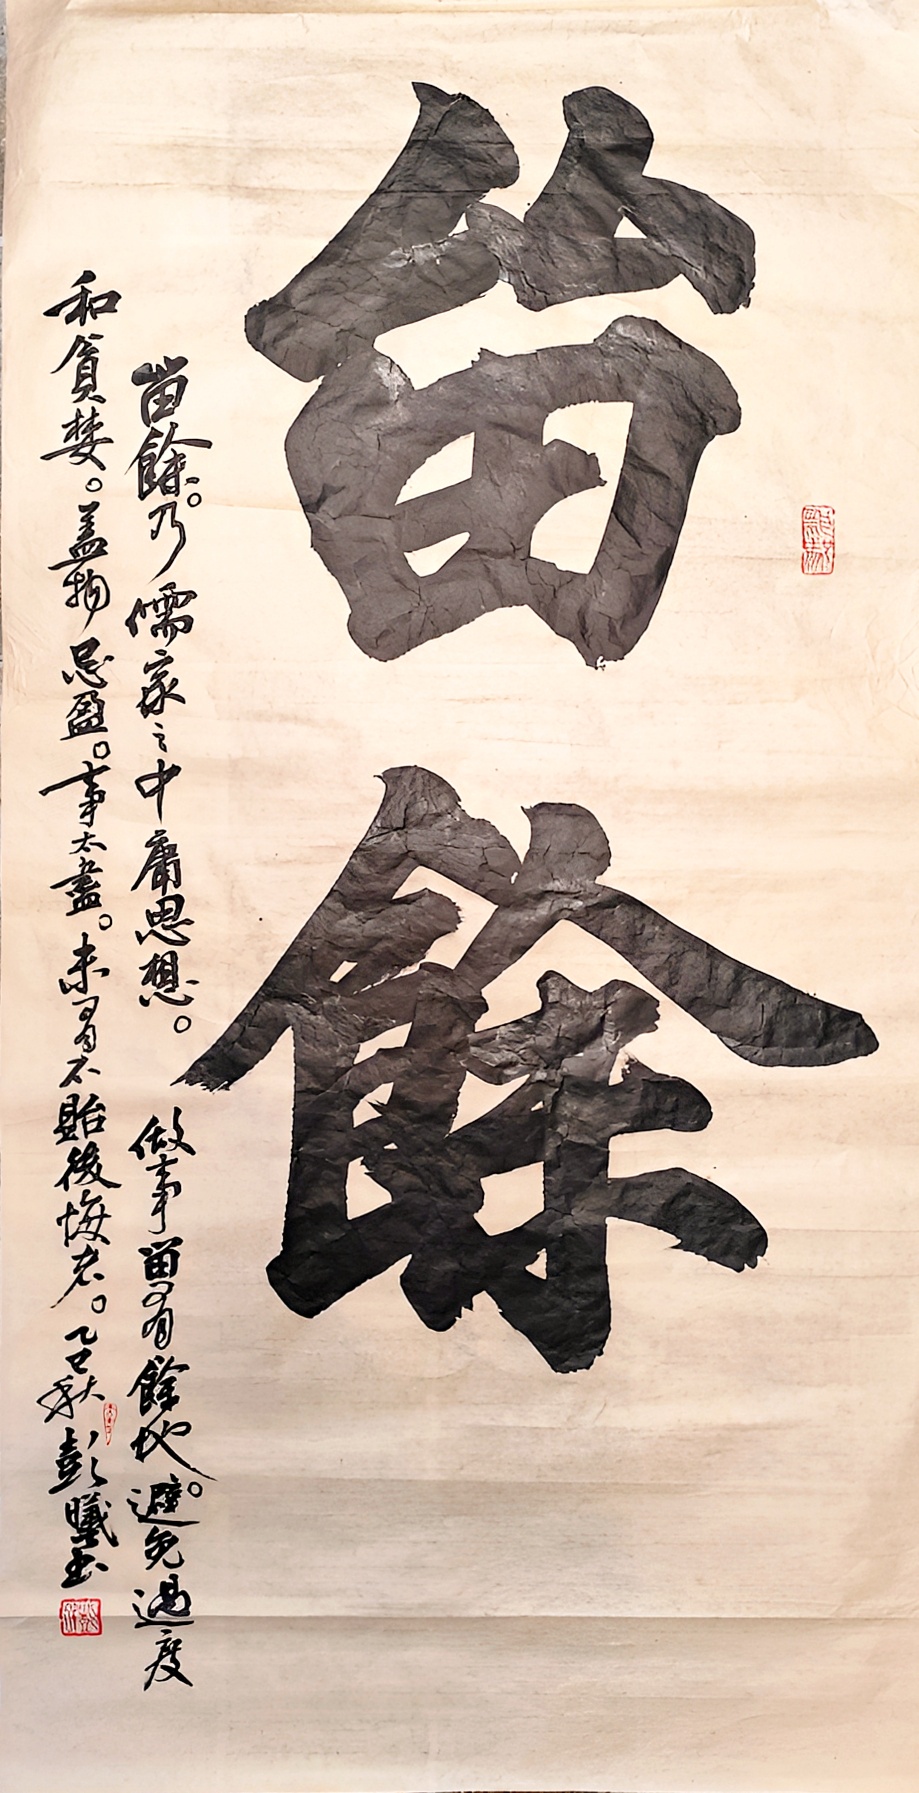 畄餘
畄餘。乃儒家之中庸思想。做事畄有餘地。避免過度
和貪婪。盖物忌盈。事太盡。未有不貽後悔者。乙巳秋彭曦书